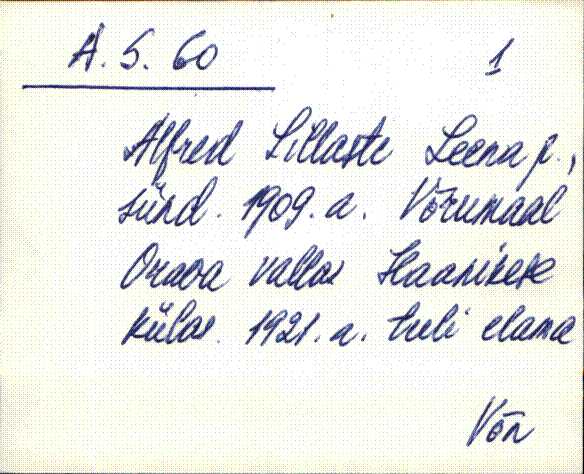 A. S. 60
1
Alfred Sillaste Leena p.,
sünd. 1909. a. Võrumaal
Orava vallas Haanikese
külas. 1921. a. tuli elama
Võn